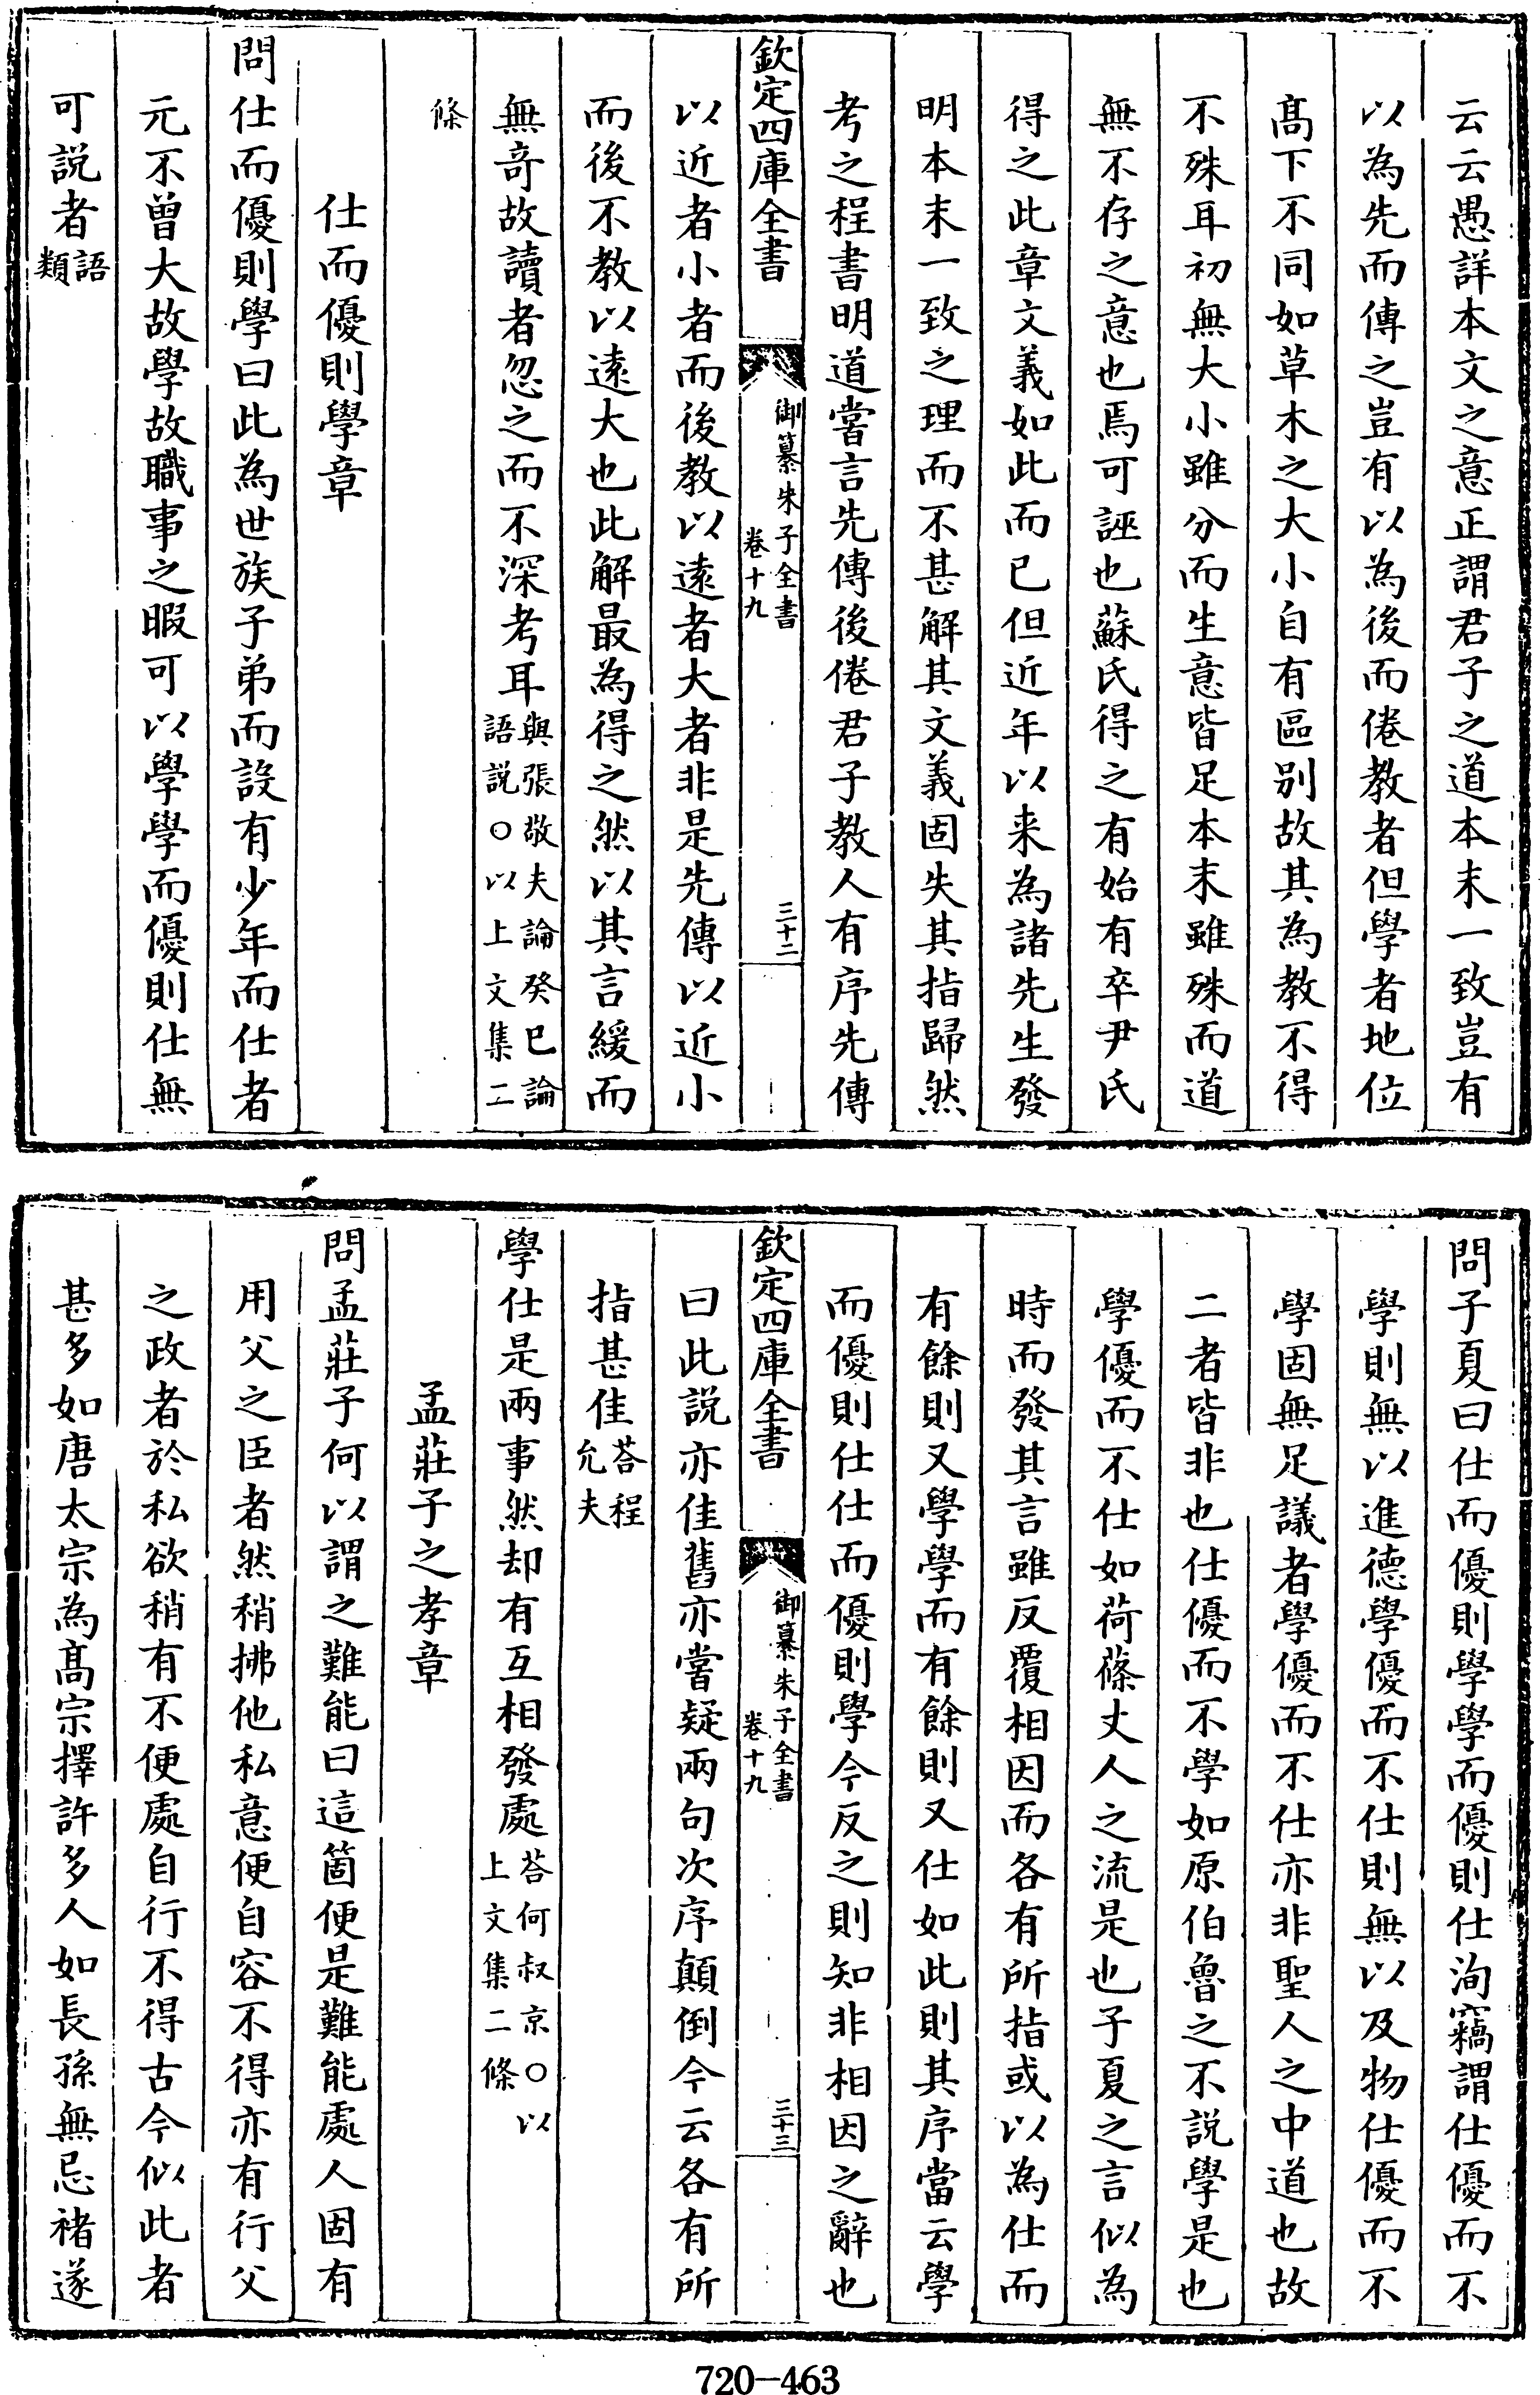 云云愚詳本文之意正謂君子之道本末一致豈有
以為先而傳之豈有以為後而倦教者但學者地位
髙下不同如草木之大小自有區别故其為教不得
不殊耳初無大小雖分而生意皆足本末雖殊而道
無不存之意也焉可誣也蘇氏得之有始有卒尹氏
得之此章文義如此而已但近年以来為諸先生發
明本末一致之理而不甚解其文義固失其指歸然
考之程書明道嘗言先傳後倦君子教人有序先傳
欽定四庫全書
御纂朱子全書
卷十九
三十二
以近者小者而後教以遠者大者非是先傳以近小
而後不教以遠大也此解最為得之然以其言緩而
無竒故讀者忽之而不深考耳與張敬夫論癸巳論
語説○以上文集二
條
仕而優則學章
問仕而優則學曰此為世族子弟而設有少年而仕者
元不曾大故學故職事之暇可以學學而優則仕無
可説者語
類
問子夏曰仕而優則學學而優則仕洵竊謂仕優而不
學則無以進德學優而不仕則無以及物仕優而不
學固無足議者學優而不仕亦非聖人之中道也故
二者皆非也仕優而不學如原伯魯之不説學是也
學優而不仕如荷蓧丈人之流是也子夏之言似為
時而發其言雖反覆相因而各有所指或以為仕而
有餘則又學學而有餘則又仕如此則其序當云學
而優則仕仕而優則學今反之則知非相因之辭也
欽定四庫全書
御纂朱子全書
卷十九
三十三
曰此説亦佳舊亦嘗疑兩句次序顛倒今云各有所
指甚佳荅程
允夫
學仕是兩事然却有互相發處荅何叔京○以
上文集二條
孟莊子之孝章
問孟莊子何以謂之難能曰這箇便是難能處人固有
用父之臣者然稍拂他私意便自容不得亦有行父
之政者於私欲稍有不便處自行不得古今似此者
甚多如唐太宗為髙宗擇許多人如長孫無忌褚遂
720-463